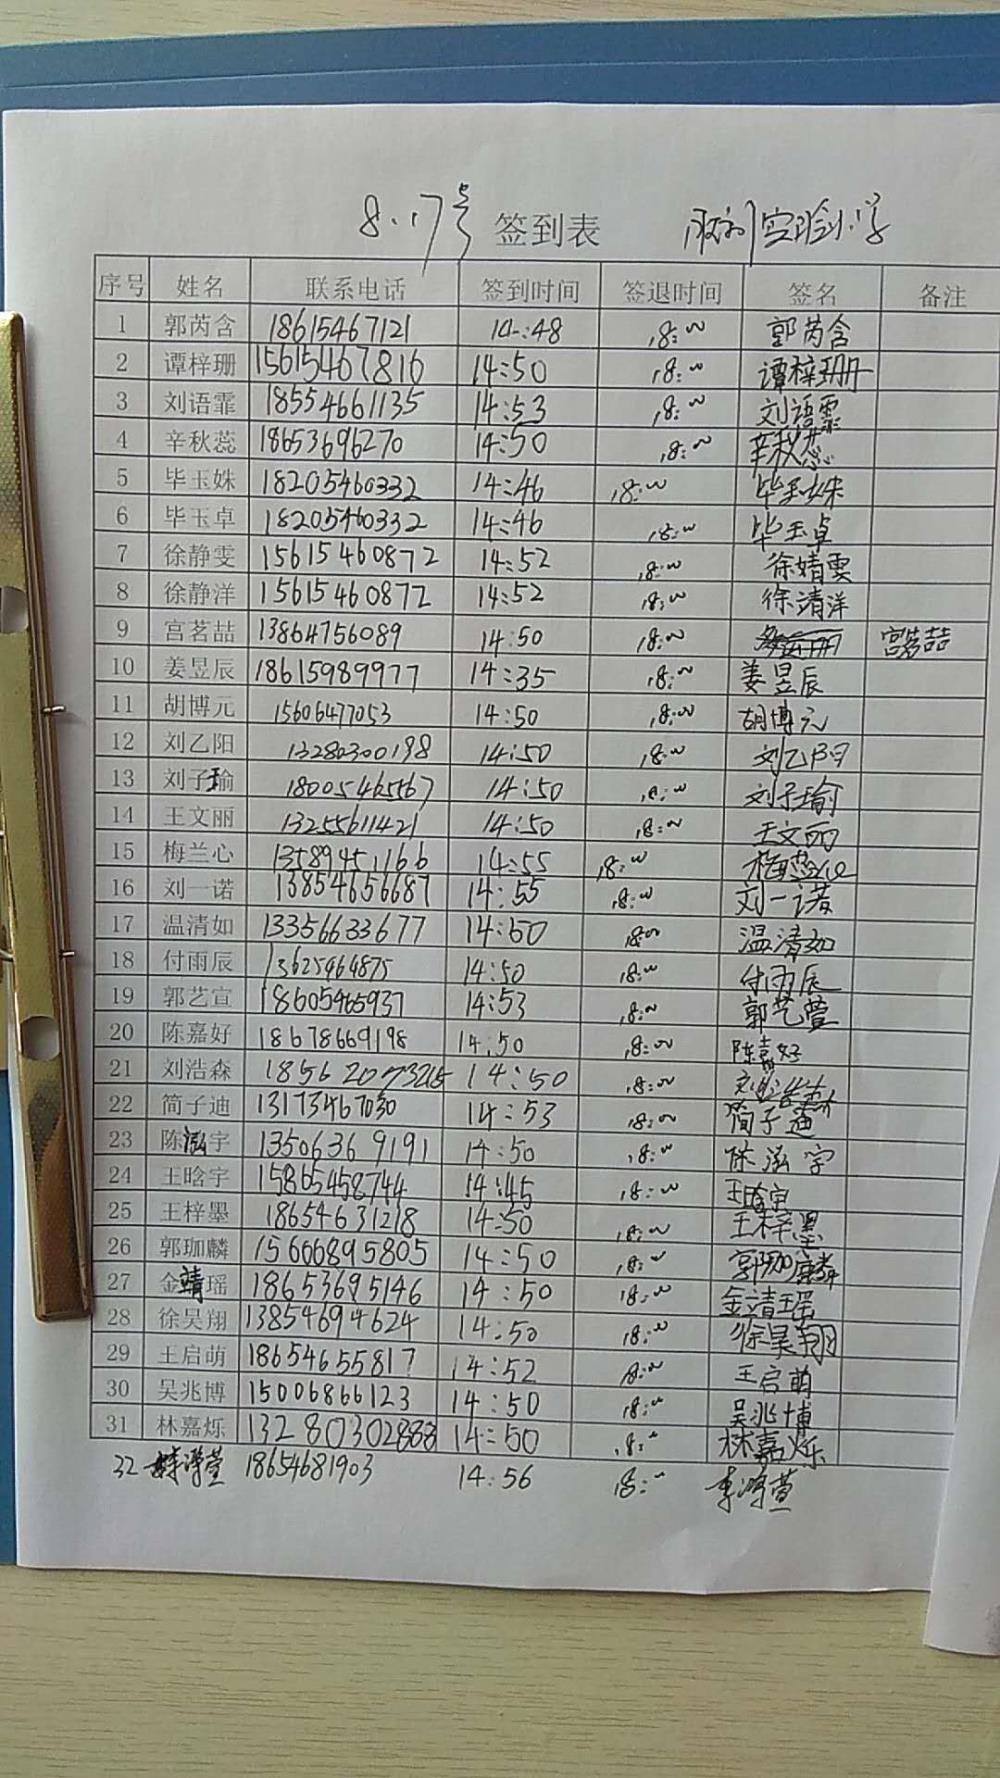 8.17号 签到表 胜利实验小学
序号 姓名 联系电话 签到时间 签退时间 签名 备注
1 郭芮含 18615467121 14:48 18:00 郭芮含
2 谭梓珊 15615467816 14:50 18:00 谭梓珊
3 刘语霏 18554661135 14:53 18:00 刘语霏
4 辛秋蕊 18653696270 14:50 18:00 辛秋蕊
5 毕玉姝 18205460332 14:46 18:00 毕玉姝
6 毕玉卓 18205460332 14:46 18:00 毕玉卓
7 徐静雯 15615460872 14:52 18:00 徐婧雯
8 徐静洋 15615460872 14:52 18:00 徐清洋
9 宫茗喆 13864756089 14:50 18:00 宫茗喆
10 姜昱辰 18615989977 14:35 18:00 姜昱辰
11 胡博元 15606477053 14:50 18:00 胡博元
12 刘乙阳 13280300198 14:50 18:00 刘乙阳
13 刘子瑜 18005465567 14:50 18:00 刘子瑜
14 王文丽 13255611421 14:50 18:00 王文丽
15 梅兰心 13589451166 14:55 18:00
16 刘一诺 13854656687 14:55 18:00 刘一诺
17 温清如 13356633677 14:50 18:00 温清如
18 付雨辰 13625464875 14:50 18:00 付雨辰
19 郭艺宣 18605465937 14:53 18:00 郭艺萱
20 陈嘉好 18678669198 14:50 18:00 陈嘉好
21 刘浩森 14:50 18:00 刘浩森
22 简子迪 13173467030 14:53 18:00 简子迪
23 陈泓宇 13506369191 14:50 18:00 陈泓宇
24 王晗宇 15865458744 14:45 18:00 王晗宇
25 王梓墨 18654631218 14:50 18:00 王梓墨
26 郭珈麟 15666895805 14:50 18:00 郭珈麟
27 金靖瑶 18653695146 14:50 18:00 金靖瑶
28 徐昊翔 13854694624 14:50 18:00 徐昊翔
29 王启萌 18654655817 14:52 18:00 王启萌
30 吴兆博 15006866123 14:50 18:00 吴兆博
31 林嘉烁 13280302888 14:50 18:00 林嘉烁
32 18654681903 14:56 18:00